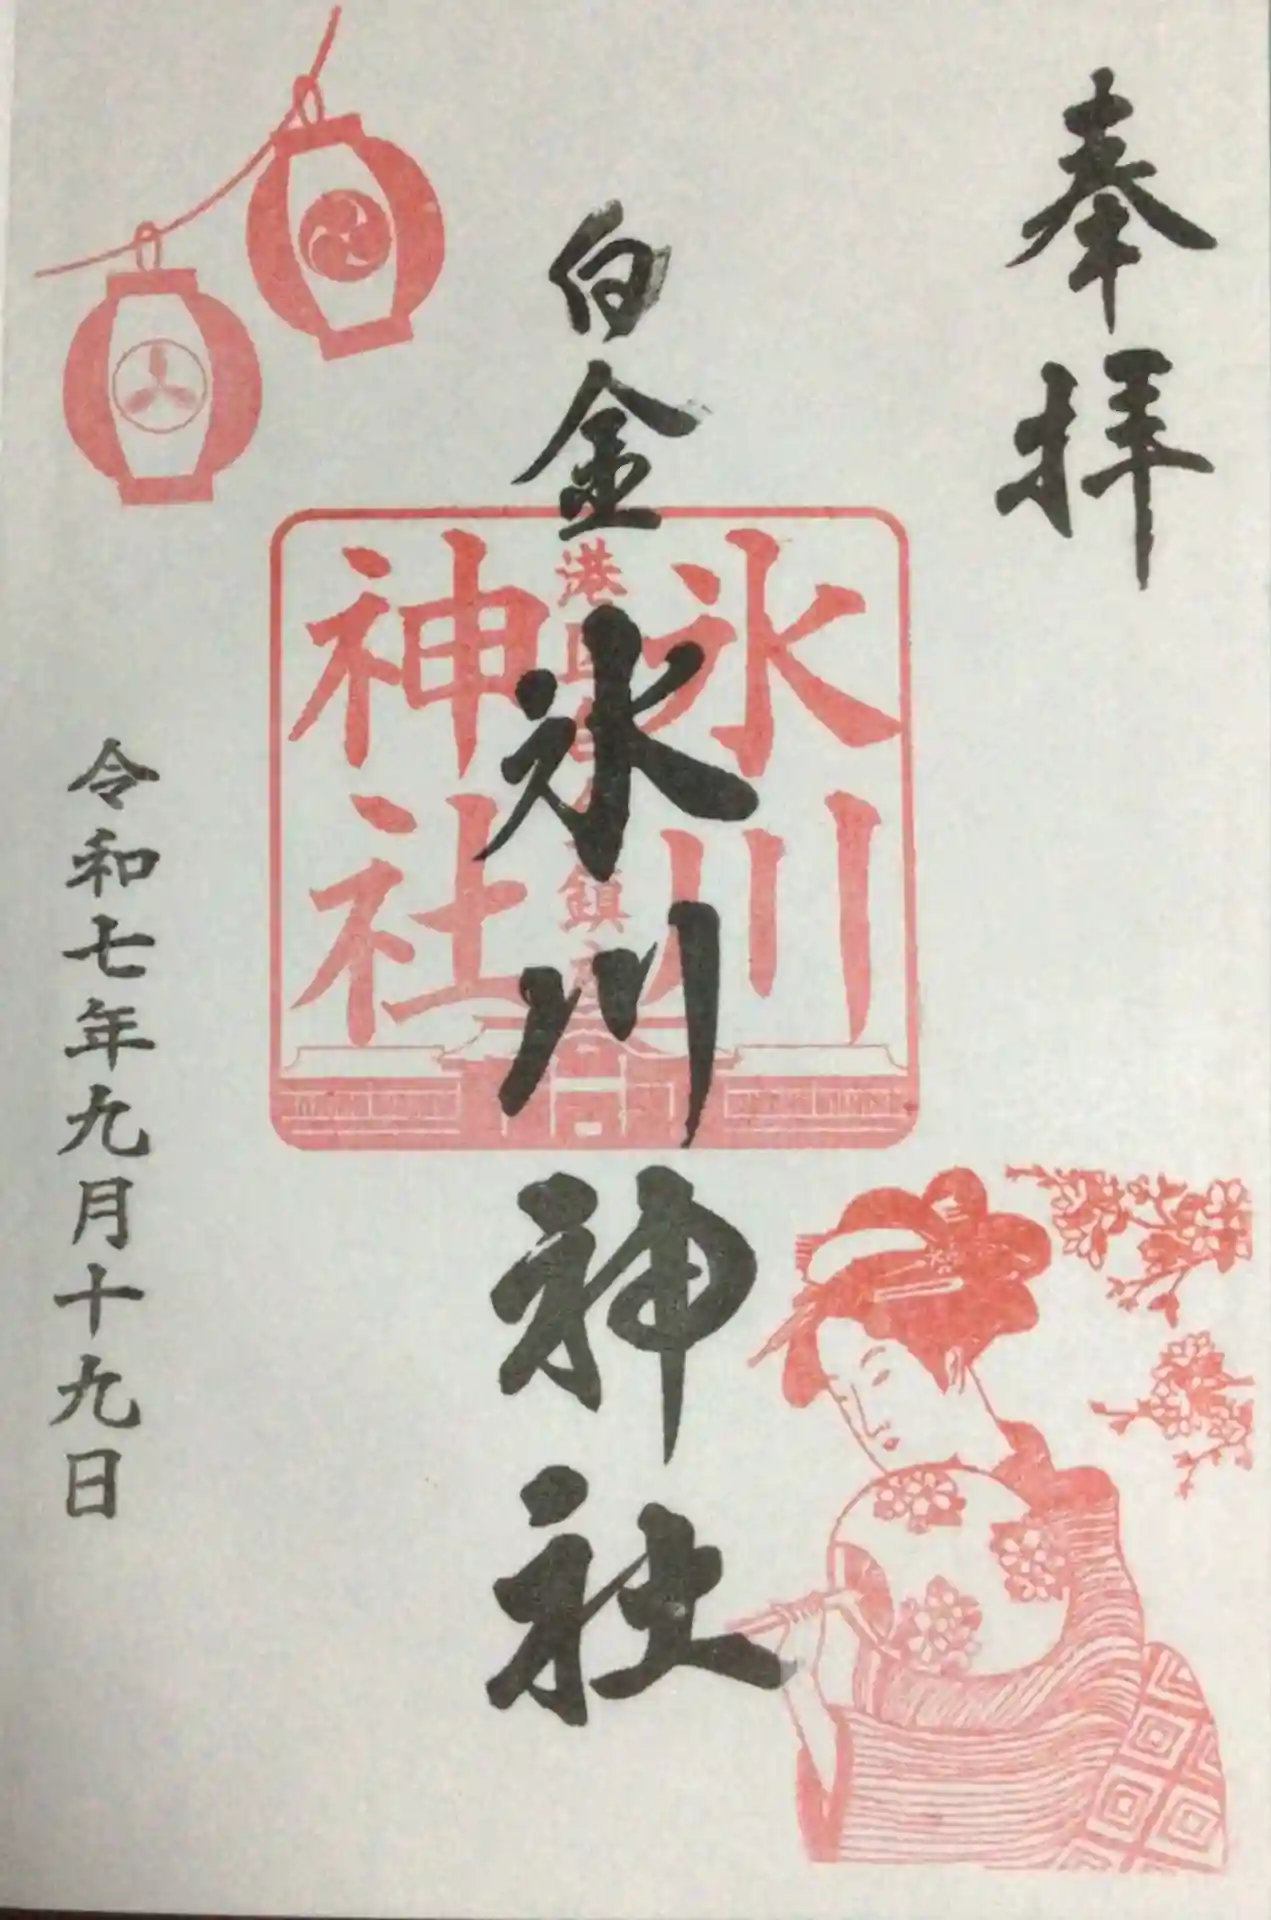 奉拝
白金氷川神社
氷川
港区白金鎮座
神社
令和七年九月十九日